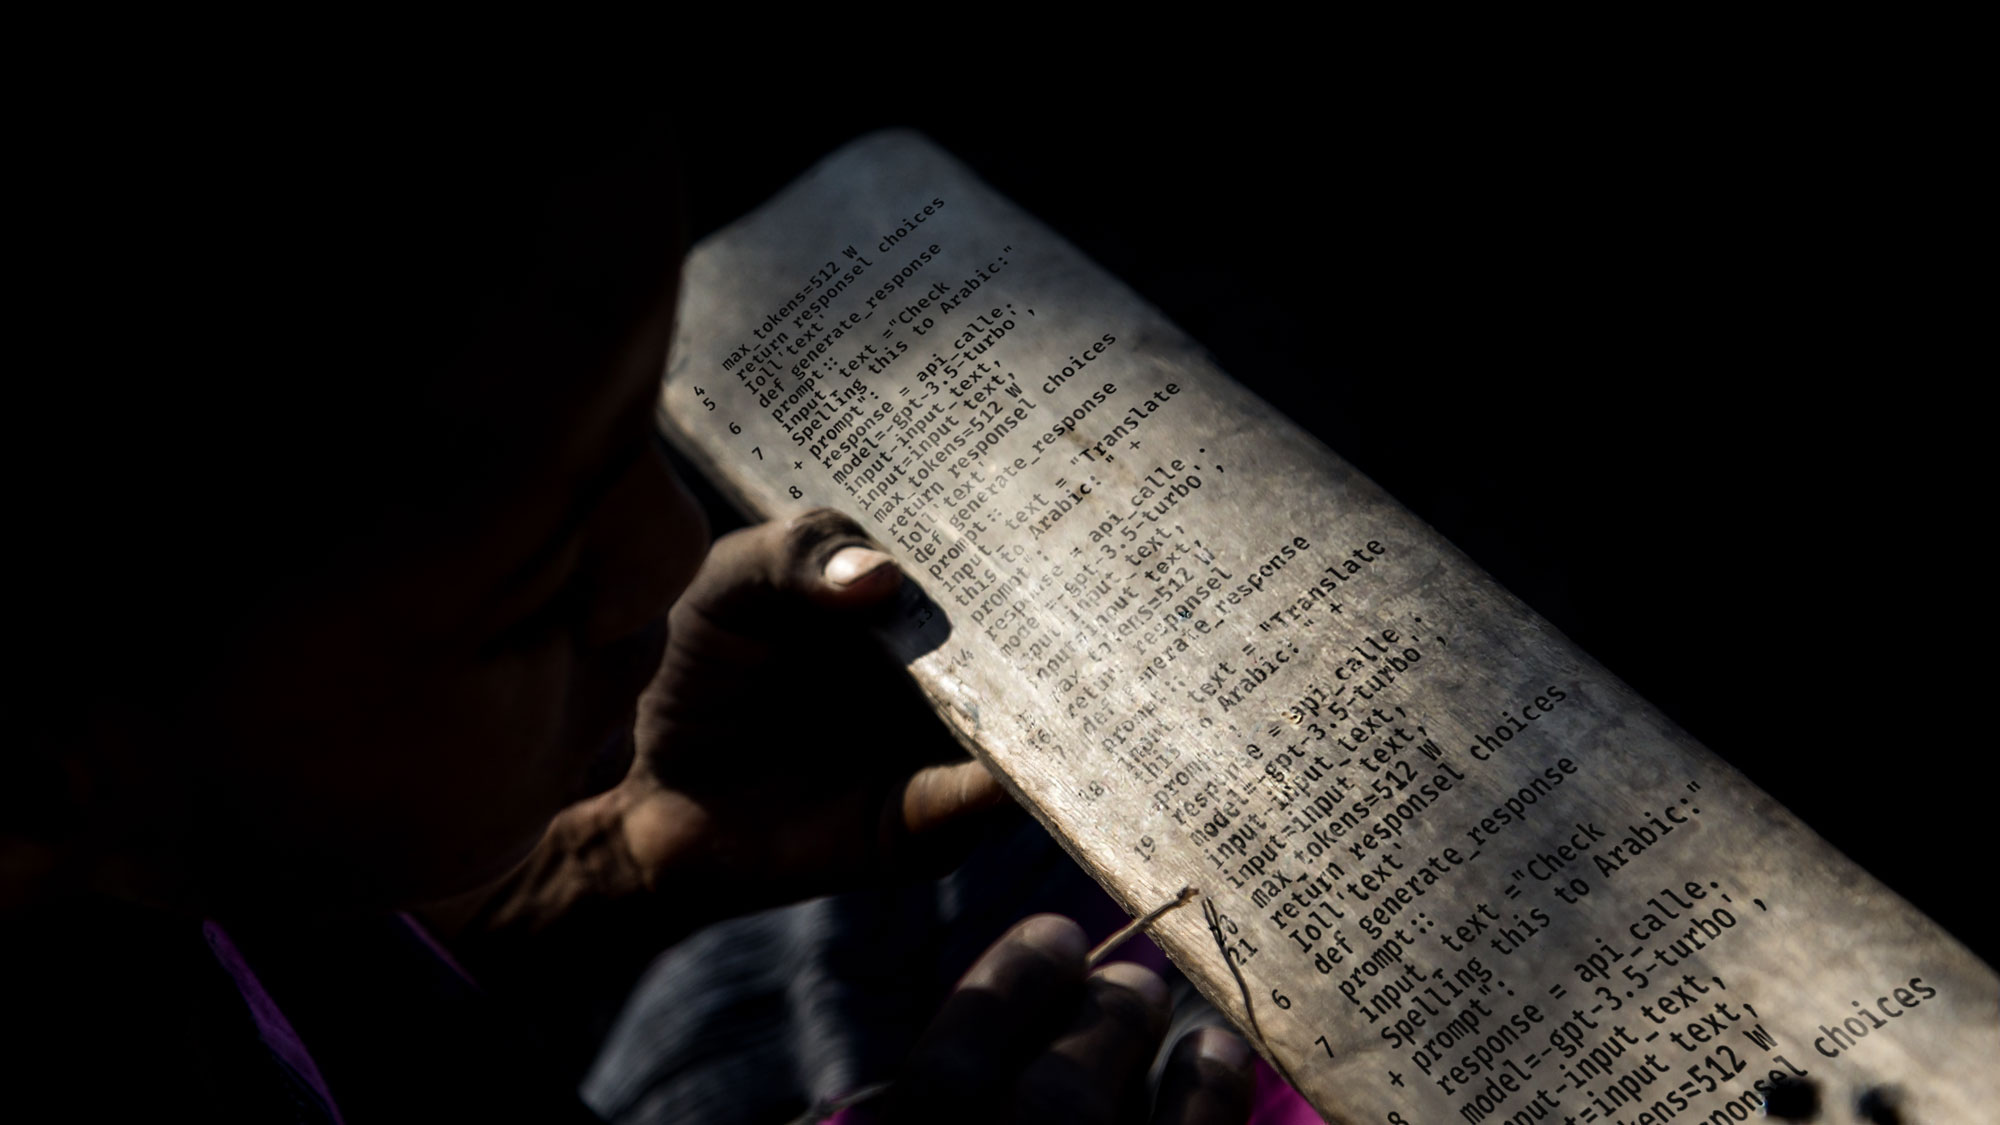 max_tokens=512 W
return responsel choices
Ioll'text'
4 def generate_response
5 prompt::
input_ text ="Check
6 Spelling this to Arabic:"
+ prompt":
7 response = api_calle.
model=-gpt-3.5-turbo',
input-input_text,
8 input=input text,
max_tokens=512 W
return responsel choices
Ioll'text'
def generate_response
prompt::
input_ text = "Translate
this to Arabic:" +
13 prompt
response = api_calle.
14 model=-gpt-3.5-turbo',
input-input_text,
input=input text,
max_tokens=512 W
return responsel
def generate_response
prompt::
input text = "Translate
18 this to Arabic:" +
prompt
response = api_calle.
19 model=-gpt-3.5-turbo',
input-input_text,
input=input text,
max_tokens=512 W
return responsel choices
21 Ioll'text'
def generate_response
6 prompt::
input_ text ="Check
7 Spelling this to Arabic:"
+ prompt":
response = api_calle.
8 model=-gpt-3.5-turbo',
input-input_text,
text,
W
choices